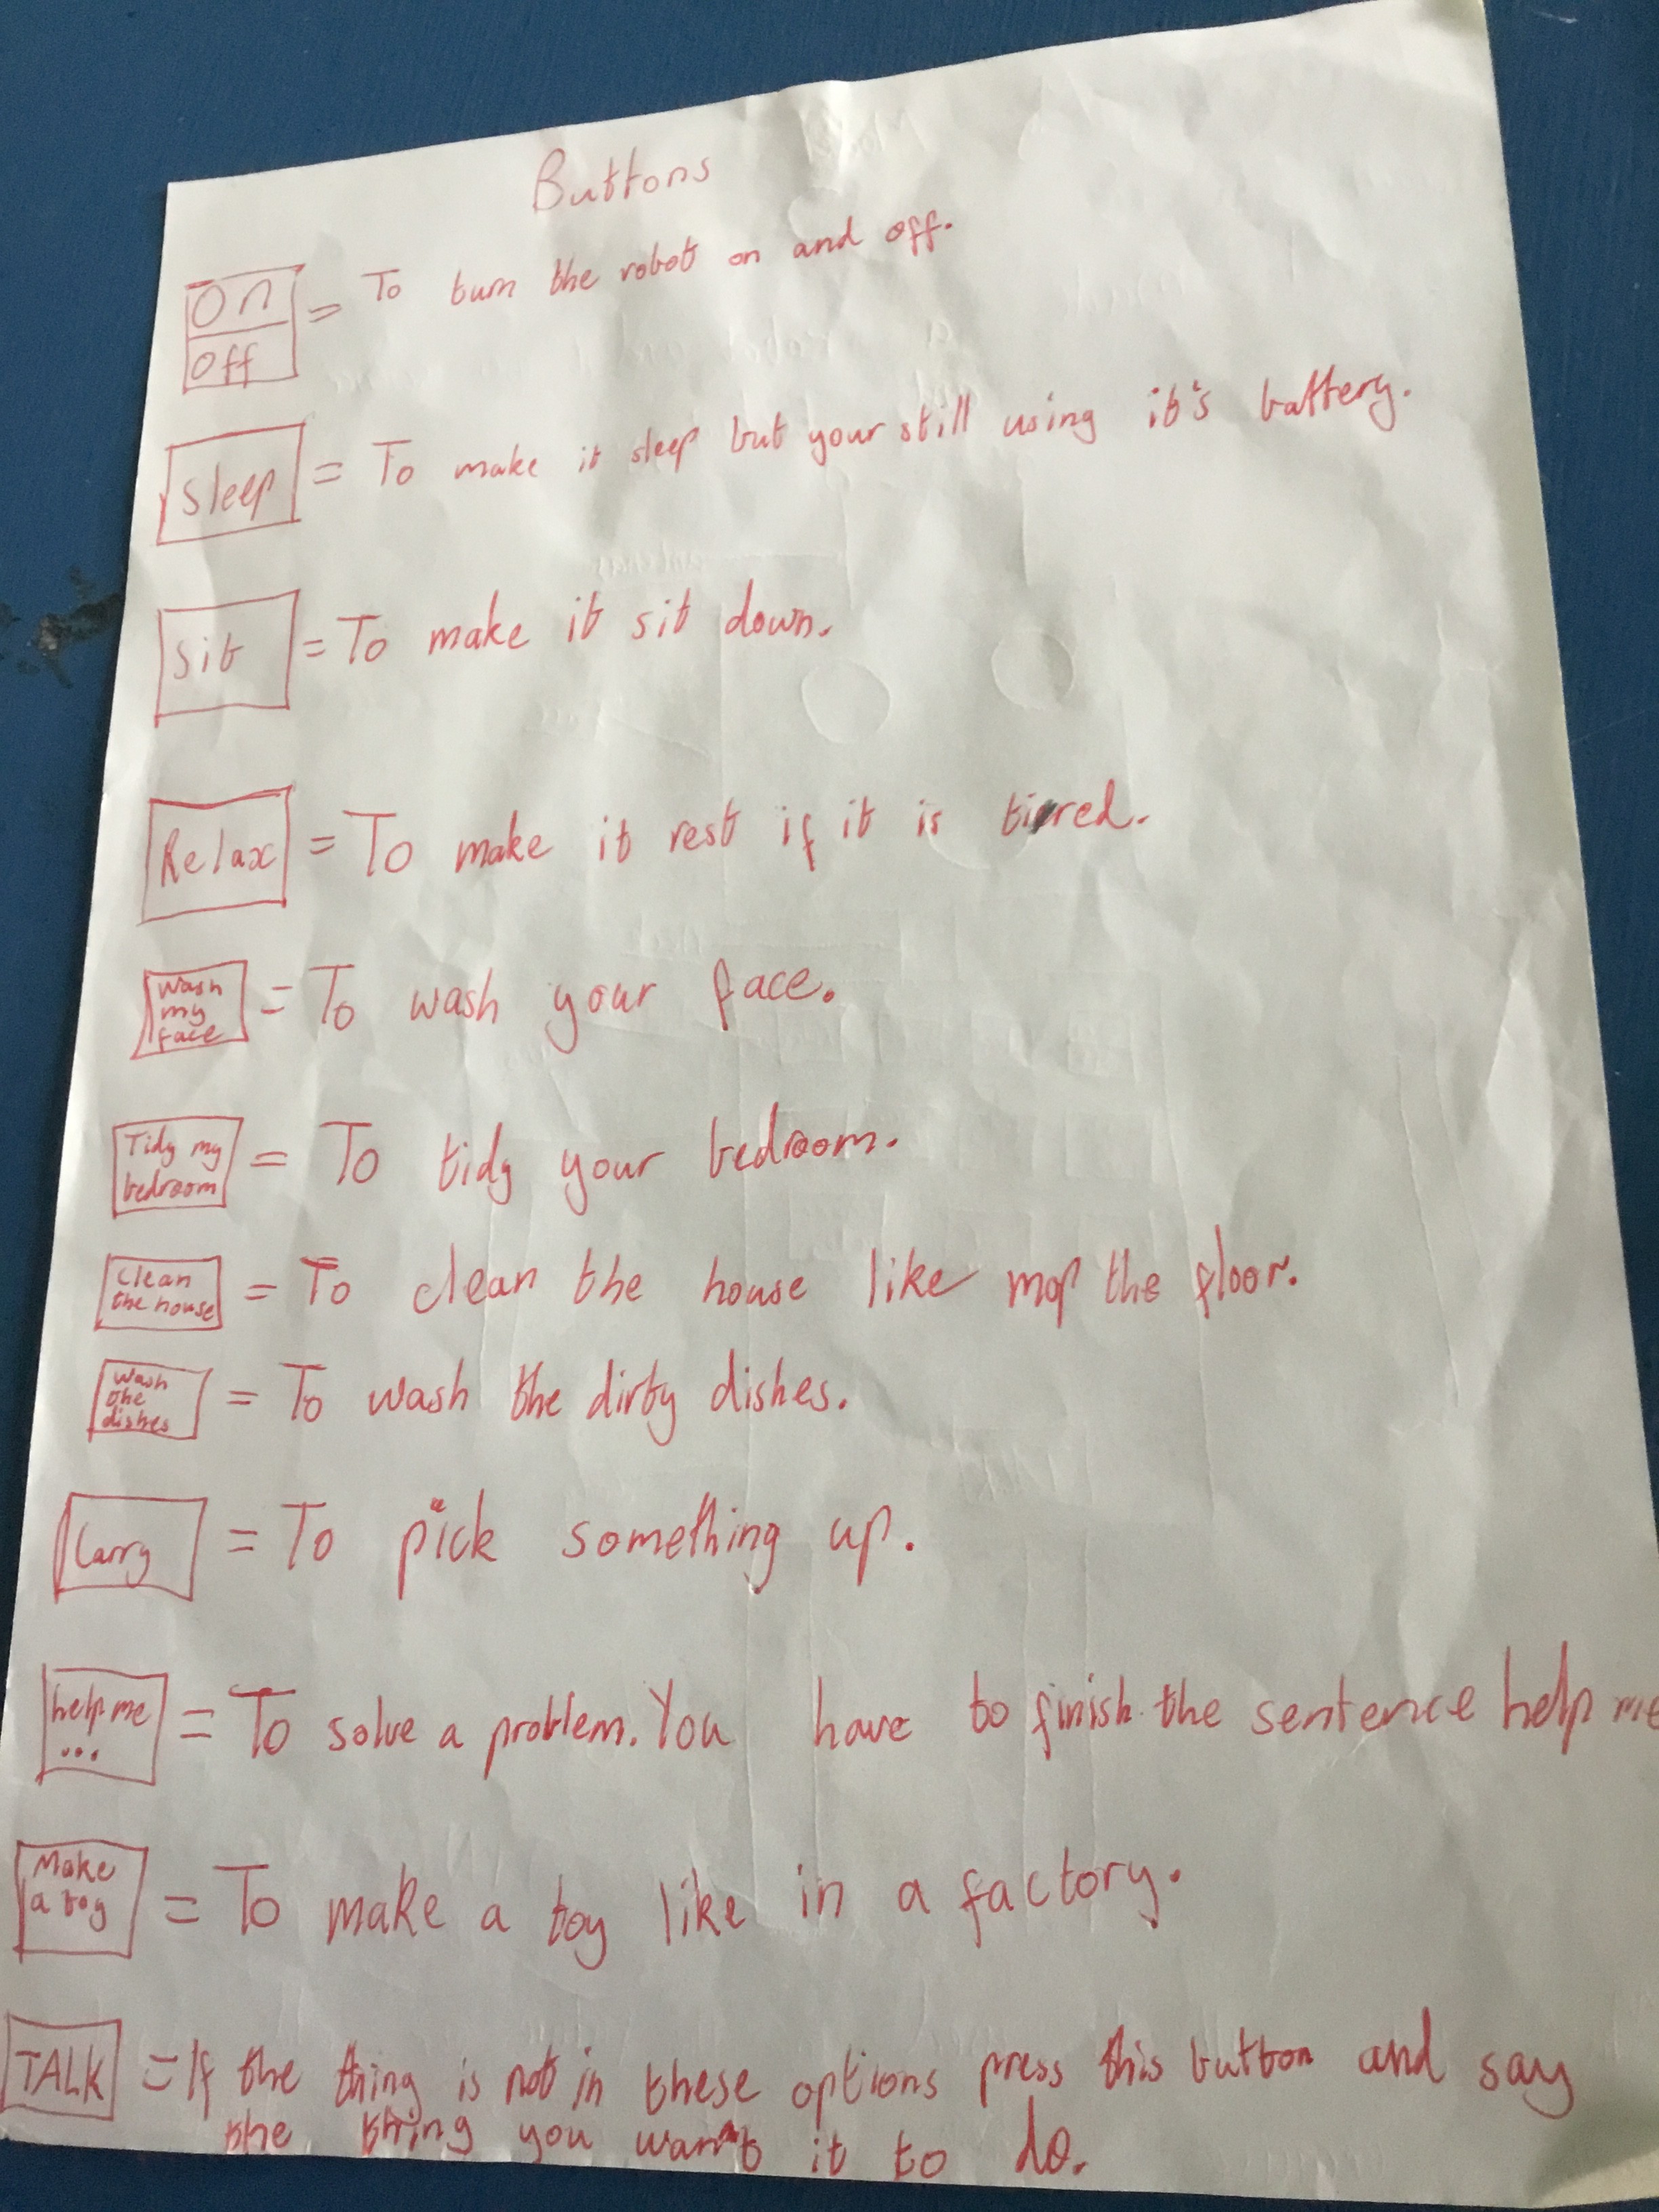 Buttons
On
Off
= To turn the robot on and off.
Sleep = To make it sleep but your still using it's battery.
Sit = To make it sit down.
Relax = To make it rest if it is tired.
Wash
my
face
= To wash your face.
Tidy my
bedroom
= To tidy your bedroom.
Clean
the house
= To clean the house like mop the floor.
Wash
the
dishes
= To wash the dirty dishes.
Carry = To pick something up.
help me
...
= To solve a problem. You have to finish the sentence help me
Make
a toy
= To make a toy like in a factory.
TALK = If the thing is not in these options press this button and say
the thing you want it to do.